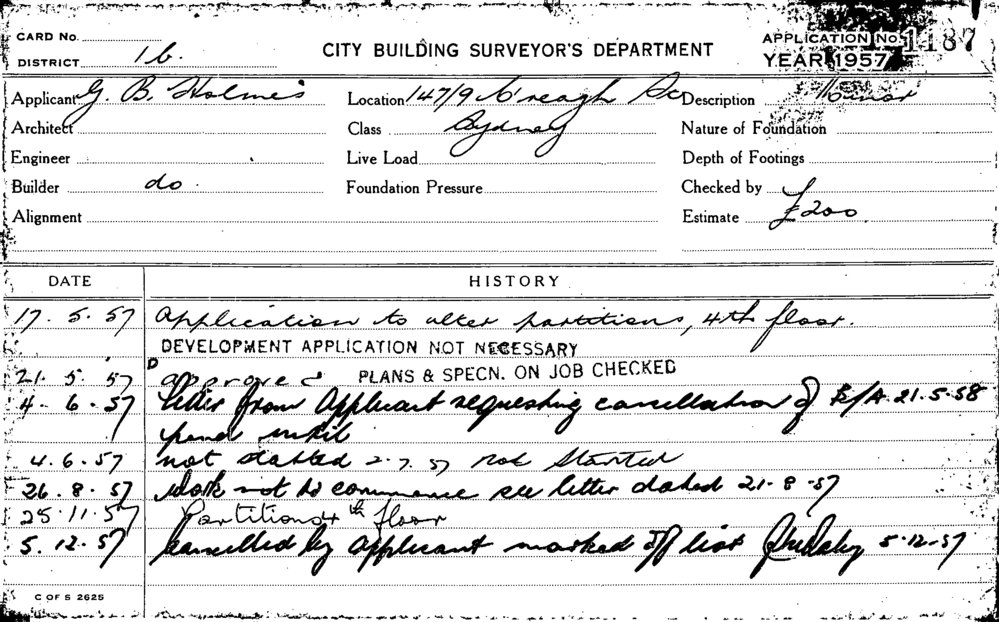 CARD No.
DISTRICT 16.
CITY BUILDING SURVEYOR'S DEPARTMENT
APPLICATION No. 1187
YEAR 1957
Applicant G. B. Holmes
Location 147/9 C'reagh St
Description Minor
Architect
Class Sydney
Nature of Foundation
Engineer
Live Load
Depth of Footings
Builder do.
Foundation Pressure
Checked by
Alignment
Estimate £200
DATE HISTORY
17. 5. 57 Application to alter partitions, 4th floor.
DEVELOPMENT APPLICATION NOT NECESSARY
21. 5. 57 approved PLANS & SPECN. ON JOB CHECKED
4. 6. 57 letter from Applicant requesting cancellation of B/A. 21.5.58
until
4.6.57 not started 2.7.57 not started
26. 8. 57 Work not to commence see letter dated 21-8-57
25.11.57 Partitions 4th floor
5. 12. 57 cancelled by applicant marked off list 5-12-57
C OF S 2625